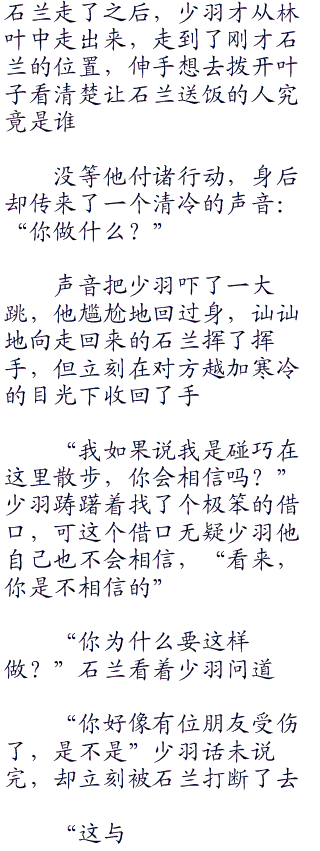 石兰走了之后，少羽才从林
叶中走出来，走到了刚才石
兰的位置，伸手想去拨开叶
子看清楚让石兰送饭的人究
竟是谁
没等他付诸行动，身后
却传来了一个清冷的声音：
“你做什么？”
声音把少羽吓了一大
跳，他尴尬地回过身，讪讪
地向走回来的石兰挥了挥
手，但立刻在对方越加寒冷
的目光下收回了手
“我如果说我是碰巧在
这里散步，你会相信吗？”
少羽踌躇着找了个极笨的借
口，可这个借口无疑少羽他
自己也不会相信，“看来，
你是不相信的”
“你为什么要这样
做？”石兰看着少羽问道
“你好像有位朋友受伤
了，是不是”少羽话未说
完，却立刻被石兰打断了去
“这与